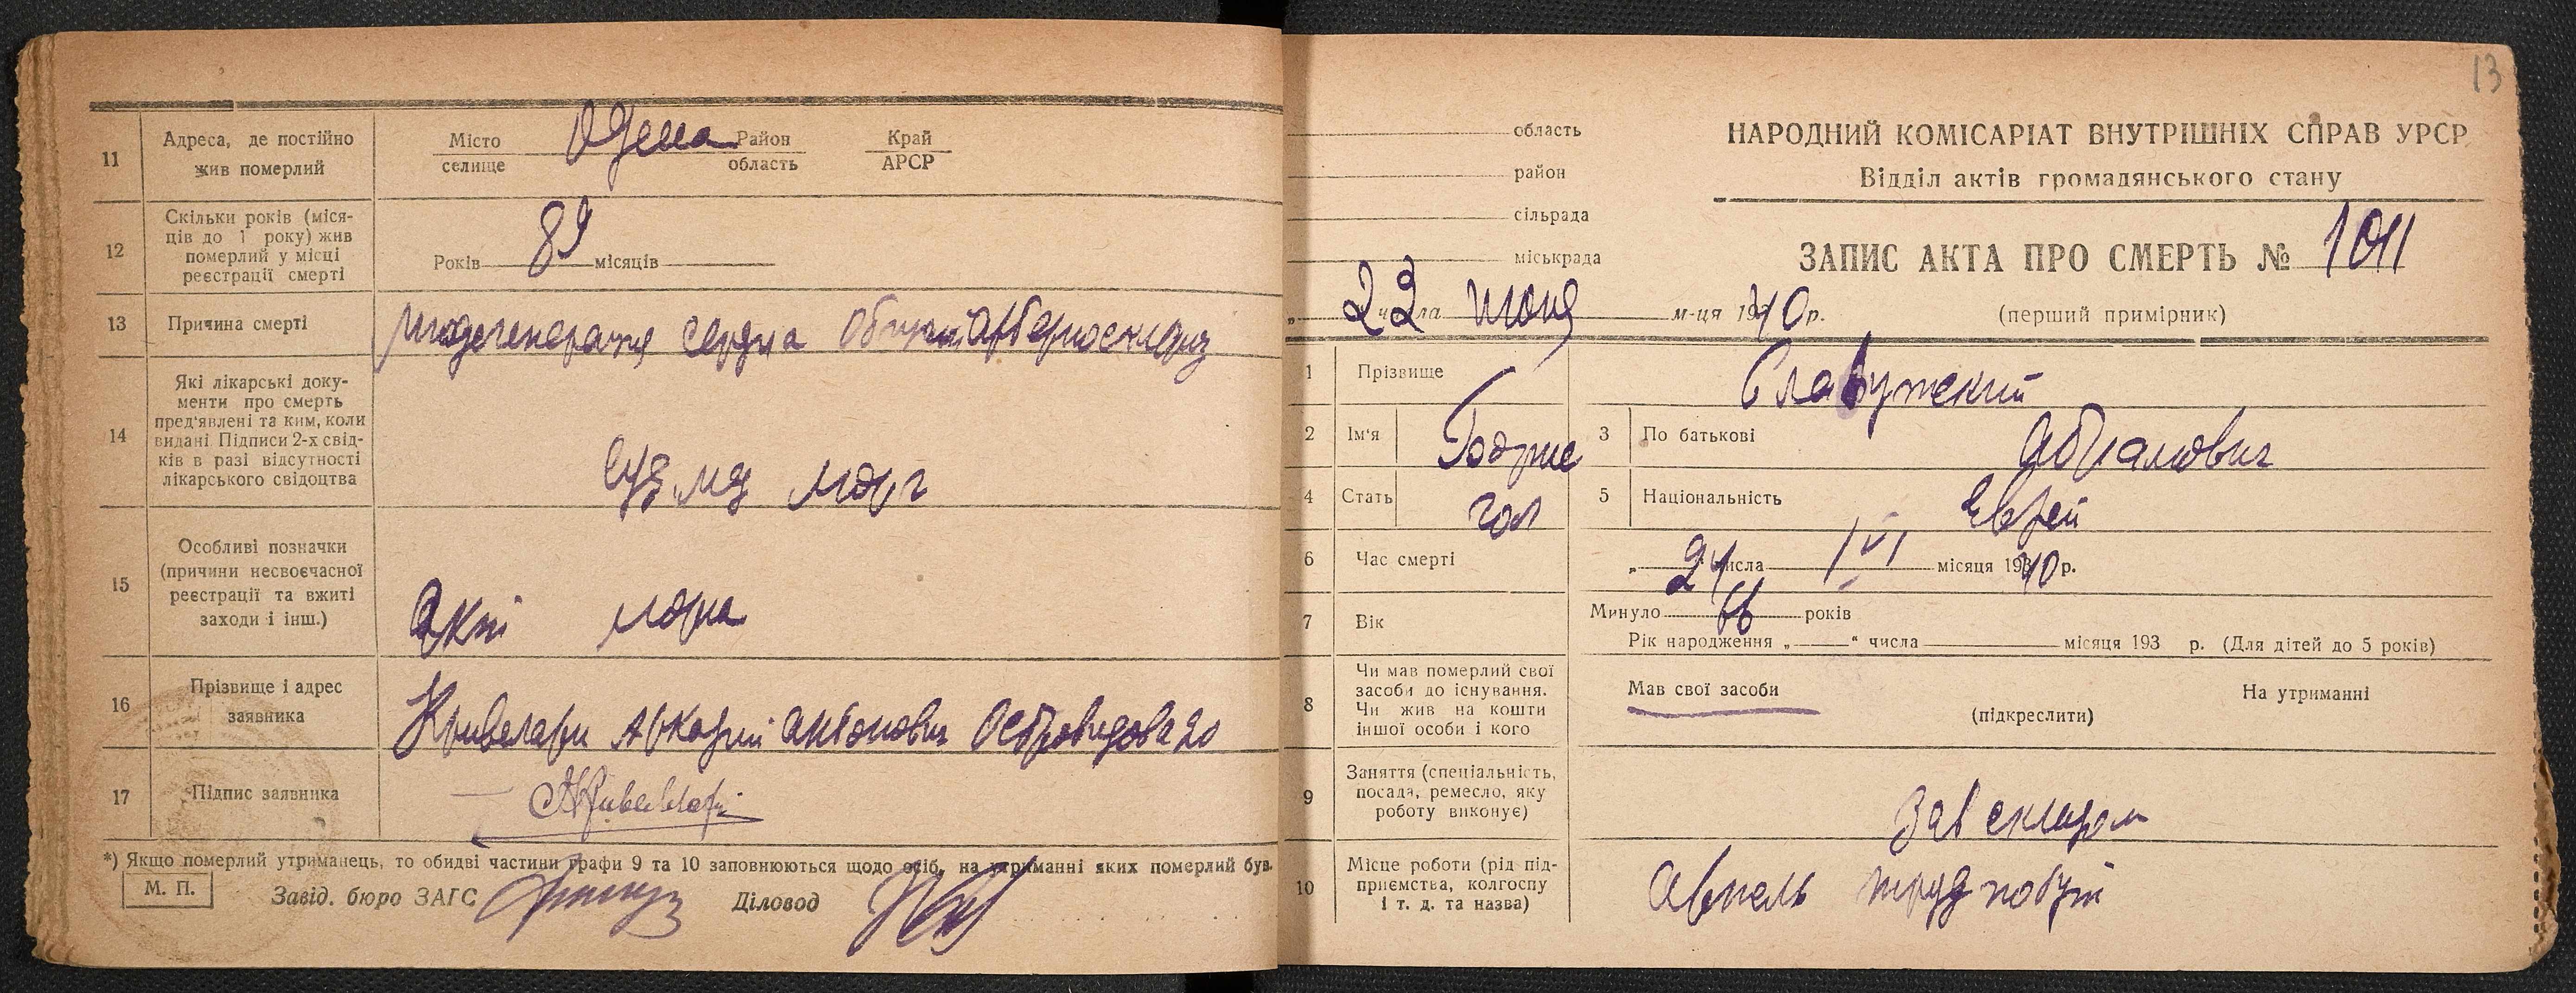 11
Адреса, де постійно
жив померлий
Місто
селище
Одесса
Район
область
Край
АРСР
12
Скільки років (міся-
ців до 1 року) жив
померлий у місці
реєстрації смерті
Років 89 місяців
13
Причина смерті
Миодегенерация сердца Общий Артериосклероз
14
Які лікарські доку-
менти про смерть
пред'явлені та ким, коли
видані Підписи 2-х свід-
ків в разі відсутності
лікарського свідоцтва
Суд. мед морг
15
Особливі позначки
(причини несвоєчасної
реєстрації та вжиті
заходи і інш.)
Акт морга
16
Прізвище і адрес
заявника
Кривелари Аркадий Антонович Островидова 20
17
Підпис заявника
АКривелари
*) Якщо померлий утриманець, то обидві частини графи 9 та 10 заповнюються щодо осіб, на утриманні яких померлий був.
М. П.
Завід. бюро ЗАГС
Діловод
13
область
район
сільрада
міськрада
НАРОДНИЙ КОМІСАРІАТ ВНУТРІШНІХ СПРАВ УРСР
Відділ актів громадянського стану
ЗАПИС АКТА ПРО СМЕРТЬ № 1011
„ 23 числа Июня м-ця 1940 р.
(перший примірник)
1
Прізвище
Славутский
2
Ім'я
3
По батькові
Абрамович
4
Стать
5
Національність
Еврей
6
Час смерті
„ 21 числа VI місяця 1940 р.
7
Вік
Минуло 66 років
Рік народження „ “ числа місяця 193 р. (Для дітей до 5 років)
8
Чи мав померлий свої
засоби до існування.
Чи жив на кошти
іншої особи і кого
Мав свої засоби
На утриманні
(підкреслити)
9
Заняття (спеціальність,
посада, ремесло, яку
роботу виконує)
Зав складом
10
Місце роботи (рід під-
приємства, колгоспу
і т. д. та назва)
Артель труд